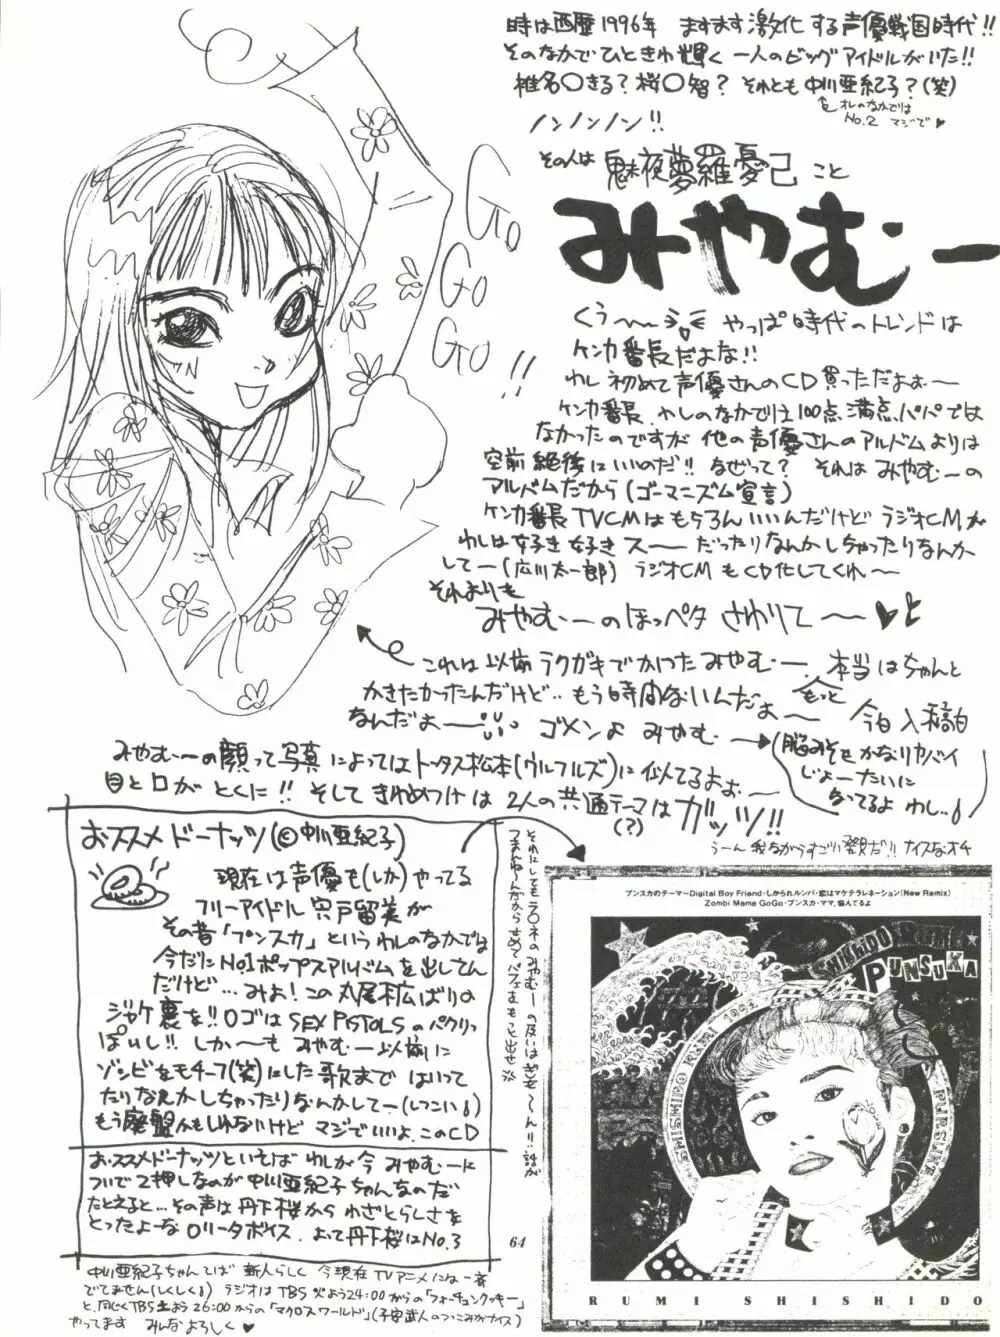 時は西歴1996年 ますます激化する声優戦国時代!!
そのなかでひときわ輝く一人のビッグアイドルがいた!!
椎名〇きる?桜〇智?それとも中川亜紀子?(笑)
オレのなかでは
No.2 マジで♥
ノンノンノン!!
その人は魅夜夢羅憂己こと
みやむー
Go
Go
Go!!
くぅ〜 やっぱ時代のトレンドは
ケンカ番長だよな!!
わし初めて声優さんのCD買っただよぉ〜
ケンカ番長、わしのなかでは100点満点パパでは
なかったのですが他の声優さんのアルバムよりは
空前絶後にいいのだ!!なぜって?それはみやむーの
アルバムだから(ゴーマニズム宣言)
ケンカ番長TVCMはもちろんいいんだけどラジオCMが
わしは好き好きスーだったりなんかしちゃったりなんか
して〜(広川太一郎)ラジオCMもCD化してくれ〜
それよりも
みやむーのほっペタさわりて〜♥
これは以前ラクガキでかいたみやむー、本当はちゃんと
かきたかったんだけど‥もう時間ないんだよ〜 もっと
なんだよ〜 ゴメンよみやむー 今日入稿日
(脳みそをかなりヤバイ
じょーたいに
なってるよわし…)
みやむーの顔って写真によってはトータス松本(ウルフルズ)に似てるよぉ
目と口がとくに!!そしてきわめつけは2人の共通テーマはガッツ!!
(?)
うーん我ながらすごい発見だ!!ナイスなオチ
おススメドーナッツ(©中川亜紀子)
現在は声優も(しか)やってる
フリーアイドル宍戸留美が
その昔「プンスカ」というわしのなかでは
今だにNo1ポップスアルバムを出してん
だけど…みよ!この丸尾末広ばりの
ジャケ裏を!!ロゴはSEX PISTOLSのパクリっ
ぽいし!!しか〜もみやむー以前に
ゾンビをモチーフ(笑)にした歌まではいって
たりなんかしちゃったりなんかして〜(しつこい)
もう廃盤かもしれないけどマジでいいよ、このCD
おススメドーナッツといえばわしが今みやむーに
ついで2押しなのが中川亜紀子ちゃんなのだ
たとえると…その声は丹下桜からわざとらしさを
とったよーなロリータボイス、よって丹下桜はNo.3
中川亜紀子ちゃんてば新人らしく今現在TVアニメには一本
でてません(しくしく)ラジオはTBS火よう24:00からの「フォーチュンクッキー」
と、同じくTBS土よう26:00からの「マクロスワールド」(子安武人のつっこみがナイス)
やってます みんなよろしく♥
それにしてもラ〇ネのみやむーの扱いはぎも〜ん!!話が
つまんねーんだからせめてパフェをもっと出せ!!
64
プンスカのテーマ〜Digital Boy Friend・しかられルンバ・恋はマケテラレネーション(New Remix)
Zombi Mama GoGo・プンスカ・ママ、悩んでるよ
SHISHIDO RUMI
PUNSUKA
RUMI SHISHIDO